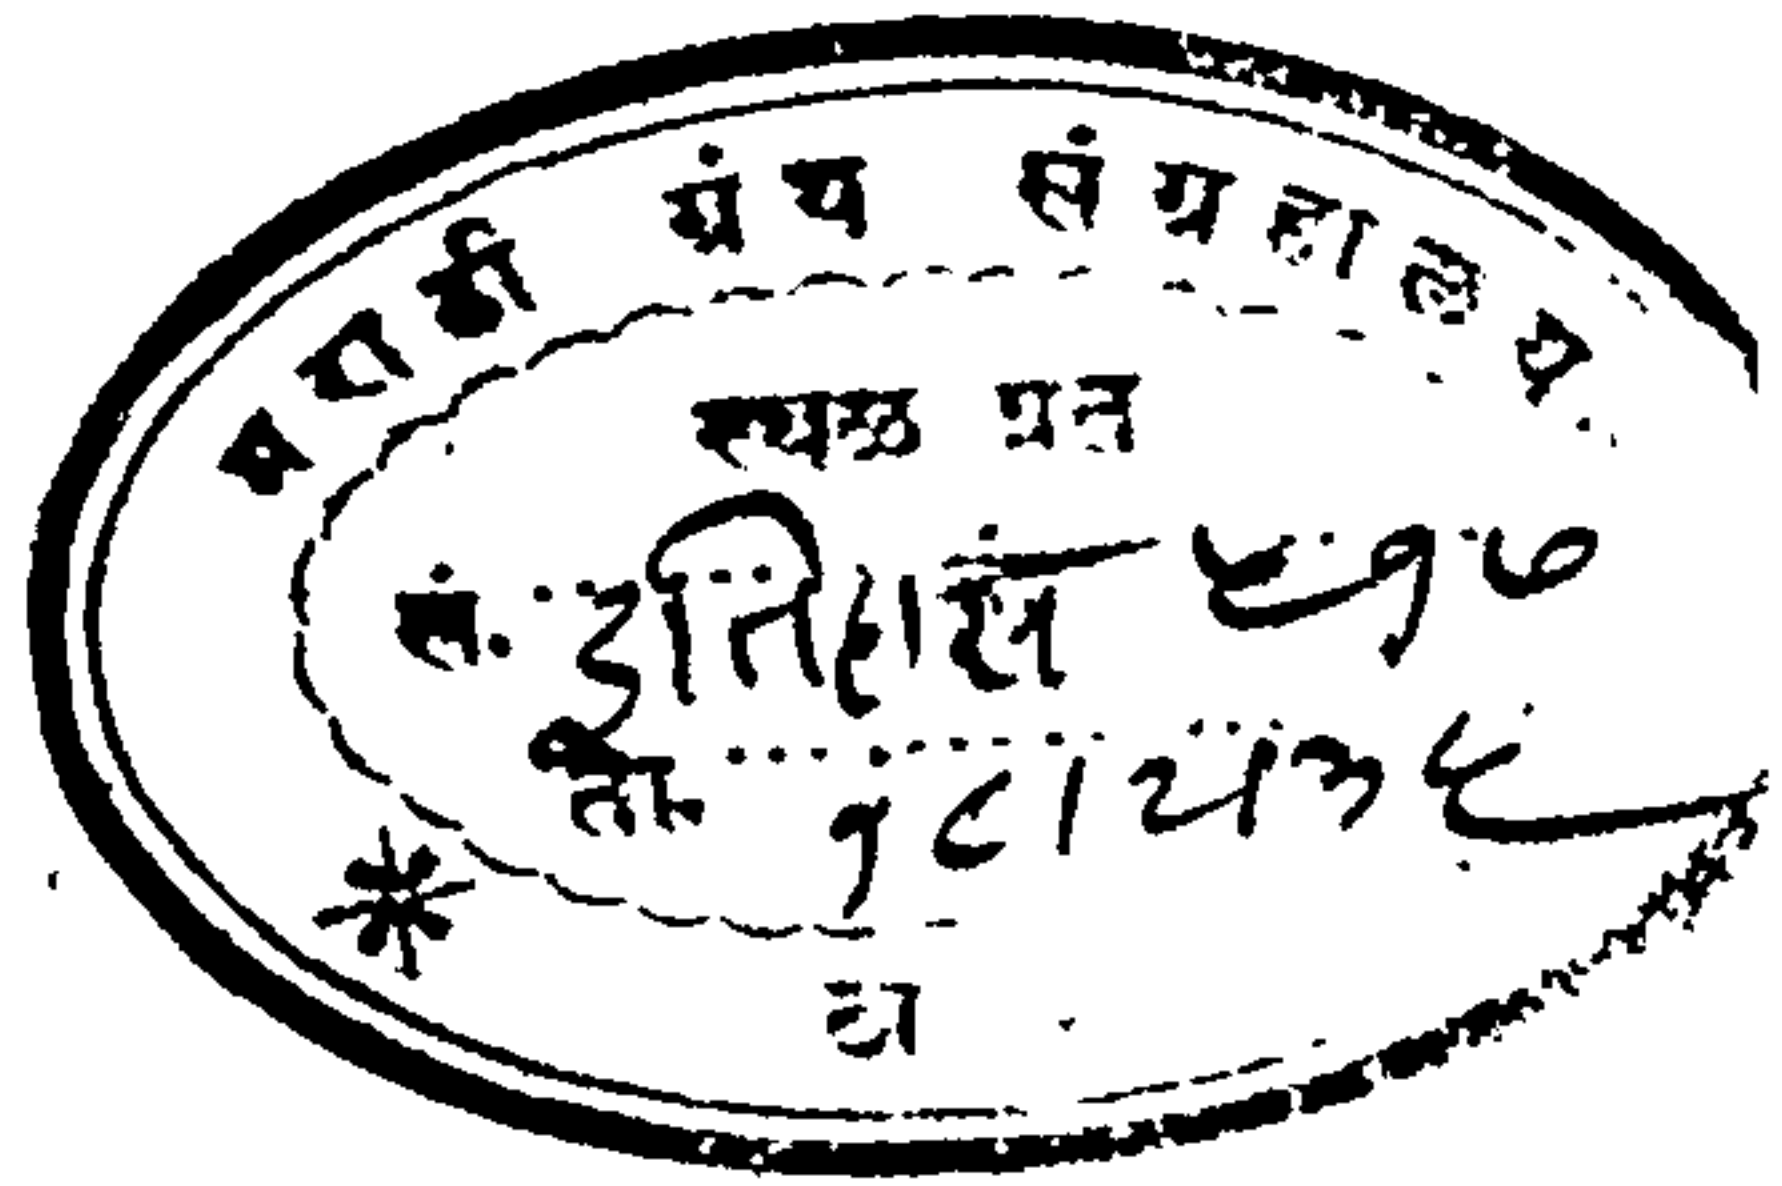 मराठी ग्रंथ संग्रहालय
स्थळ प्रत
सं. इतिहास ५१७
ता. १८।२।३५